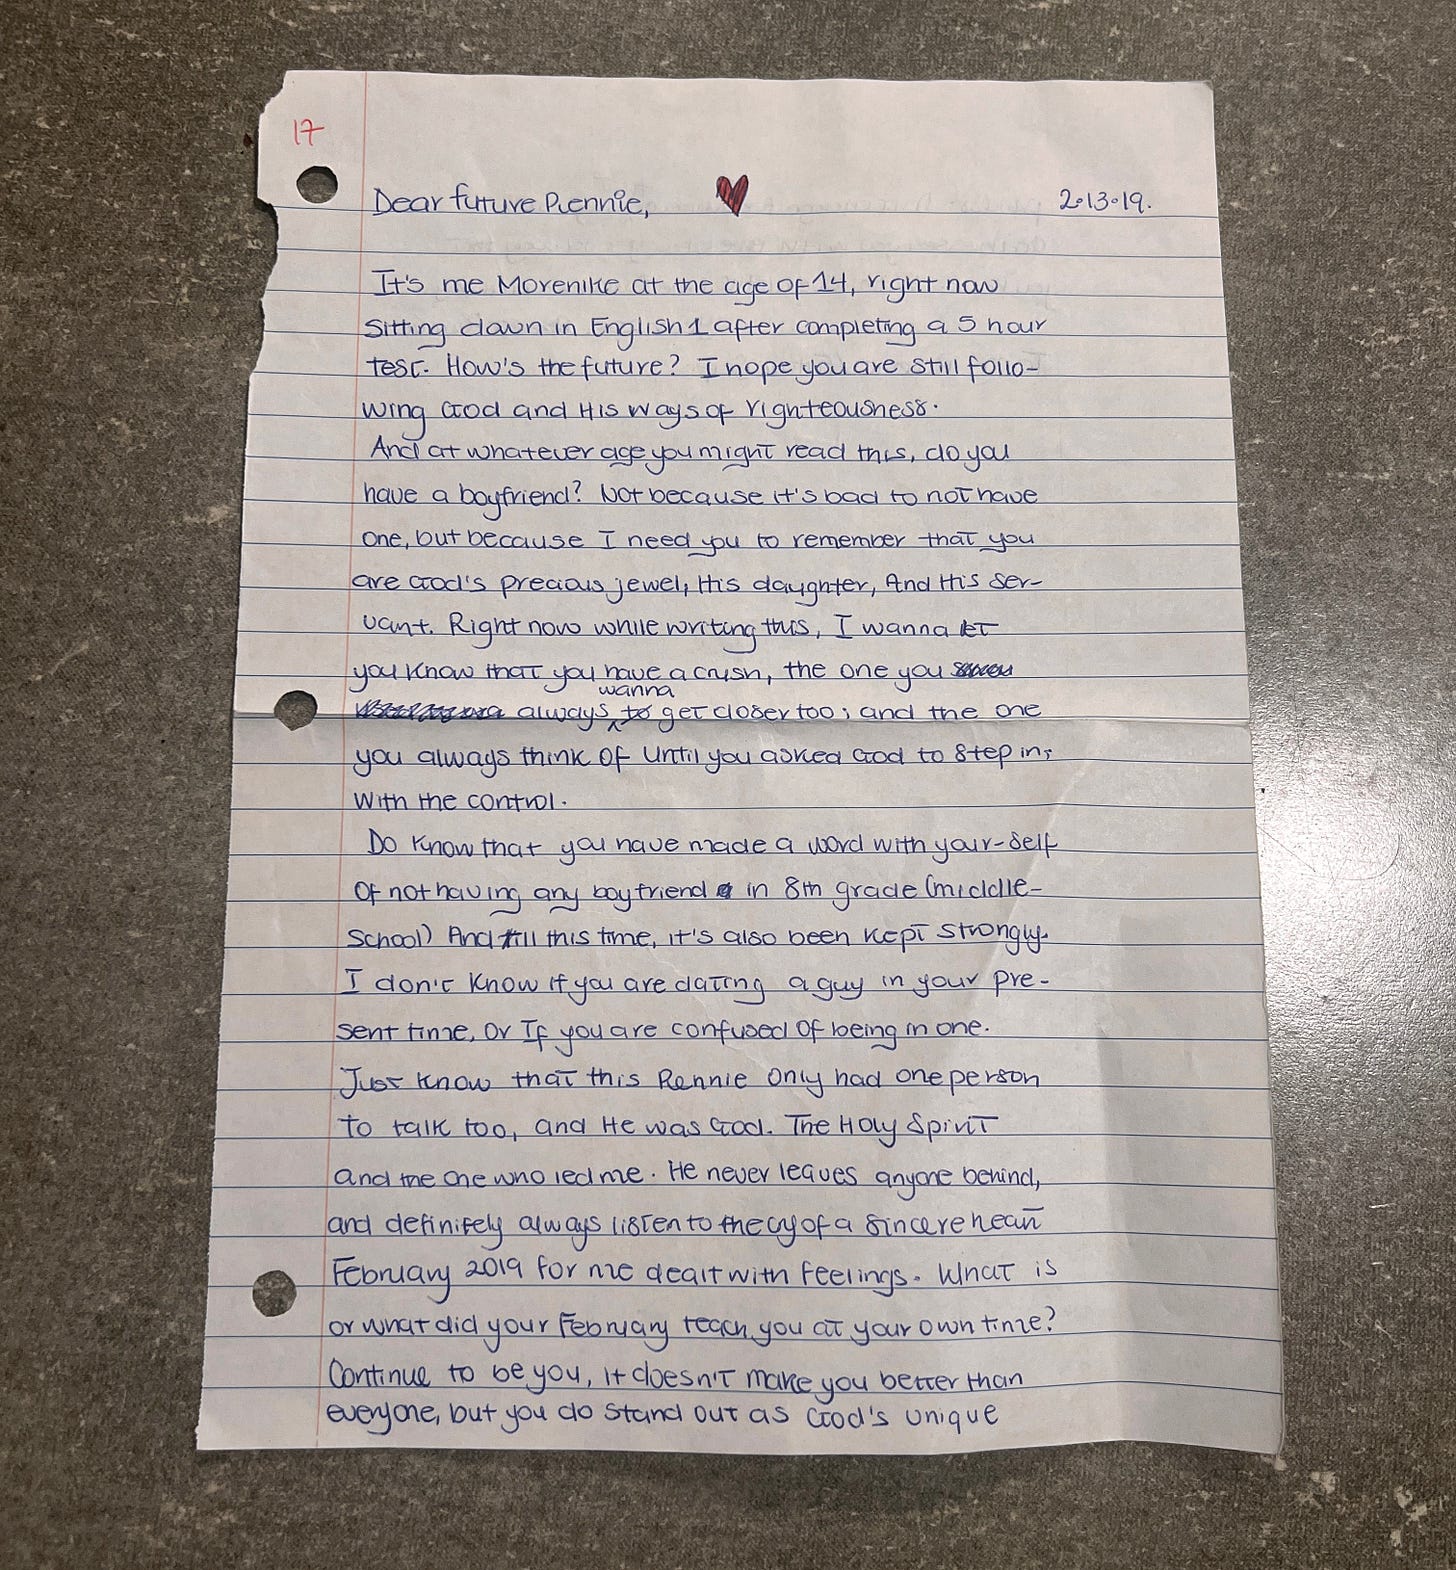 17
Dear future Rennie,
2.13.19.
It's me Morenike at the age of 14, right now
sitting down in English 1 after completing a 5 hour
test. How's the future? I hope you are still follo-
wing God and His ways of righteousness.
And at whatever age you might read this, do you
have a boyfriend? Not because it's bad to not have
one, but because I need you to remember that you
are God's precious jewel, His daughter, And His ser-
vant. Right now while writing this, I wanna let
you know that you have a crush, the one you
always wanna get closer too; and the one
you always think of until you asked God to step in;
with the control.
Do know that you have made a word with your-self
Of not having any boyfriend in 8th grade (middle-
school) And till this time, it's also been kept strongly.
I don't know if you are dating a guy in your pre-
sent time, Or If you are confused Of being in one.
Just know that this Rennie only had one person
to talk too, and He was God. The Holy Spirit
and the one who led me. He never leaves anyone behind,
and definitely always listen to the cry of a sincere heart
February 2019 for me dealt with feelings. What is
or what did your February teach you at your own time?
Continue to be you, it doesn't make you better than
everyone, but you do stand out as God's unique